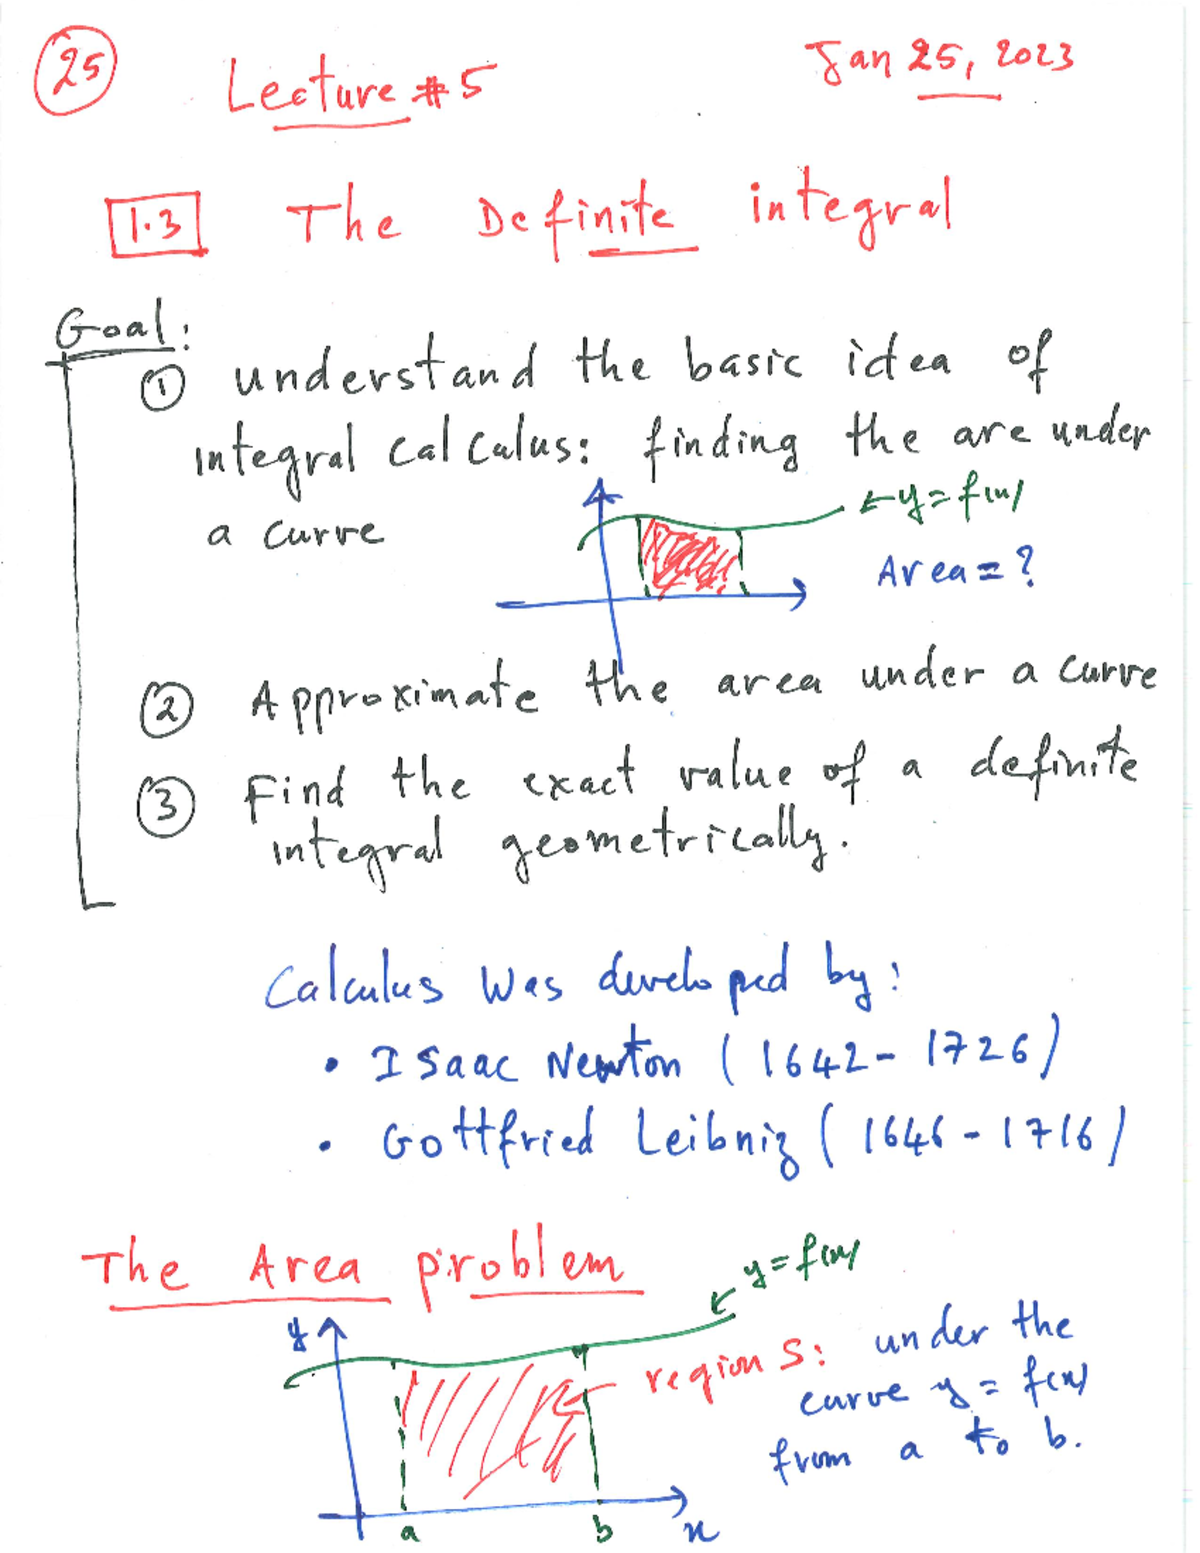 25
Lecture #5
Jan 25, 2023
1.3 The Definite integral
Goal:
① understand the basic idea of
integral calculus: finding the are under
a curve
← y = f(x)
Area = ?
② Approximate the area under a curve
③ Find the exact value of a definite
integral geometrically.
Calculus was developed by:
• Isaac Newton (1642 - 1726)
• Gottfried Leibniz (1646 - 1716)
The Area problem
y = f(x)
y
region S: under the
curve y = f(x)
from a to b.
a b x